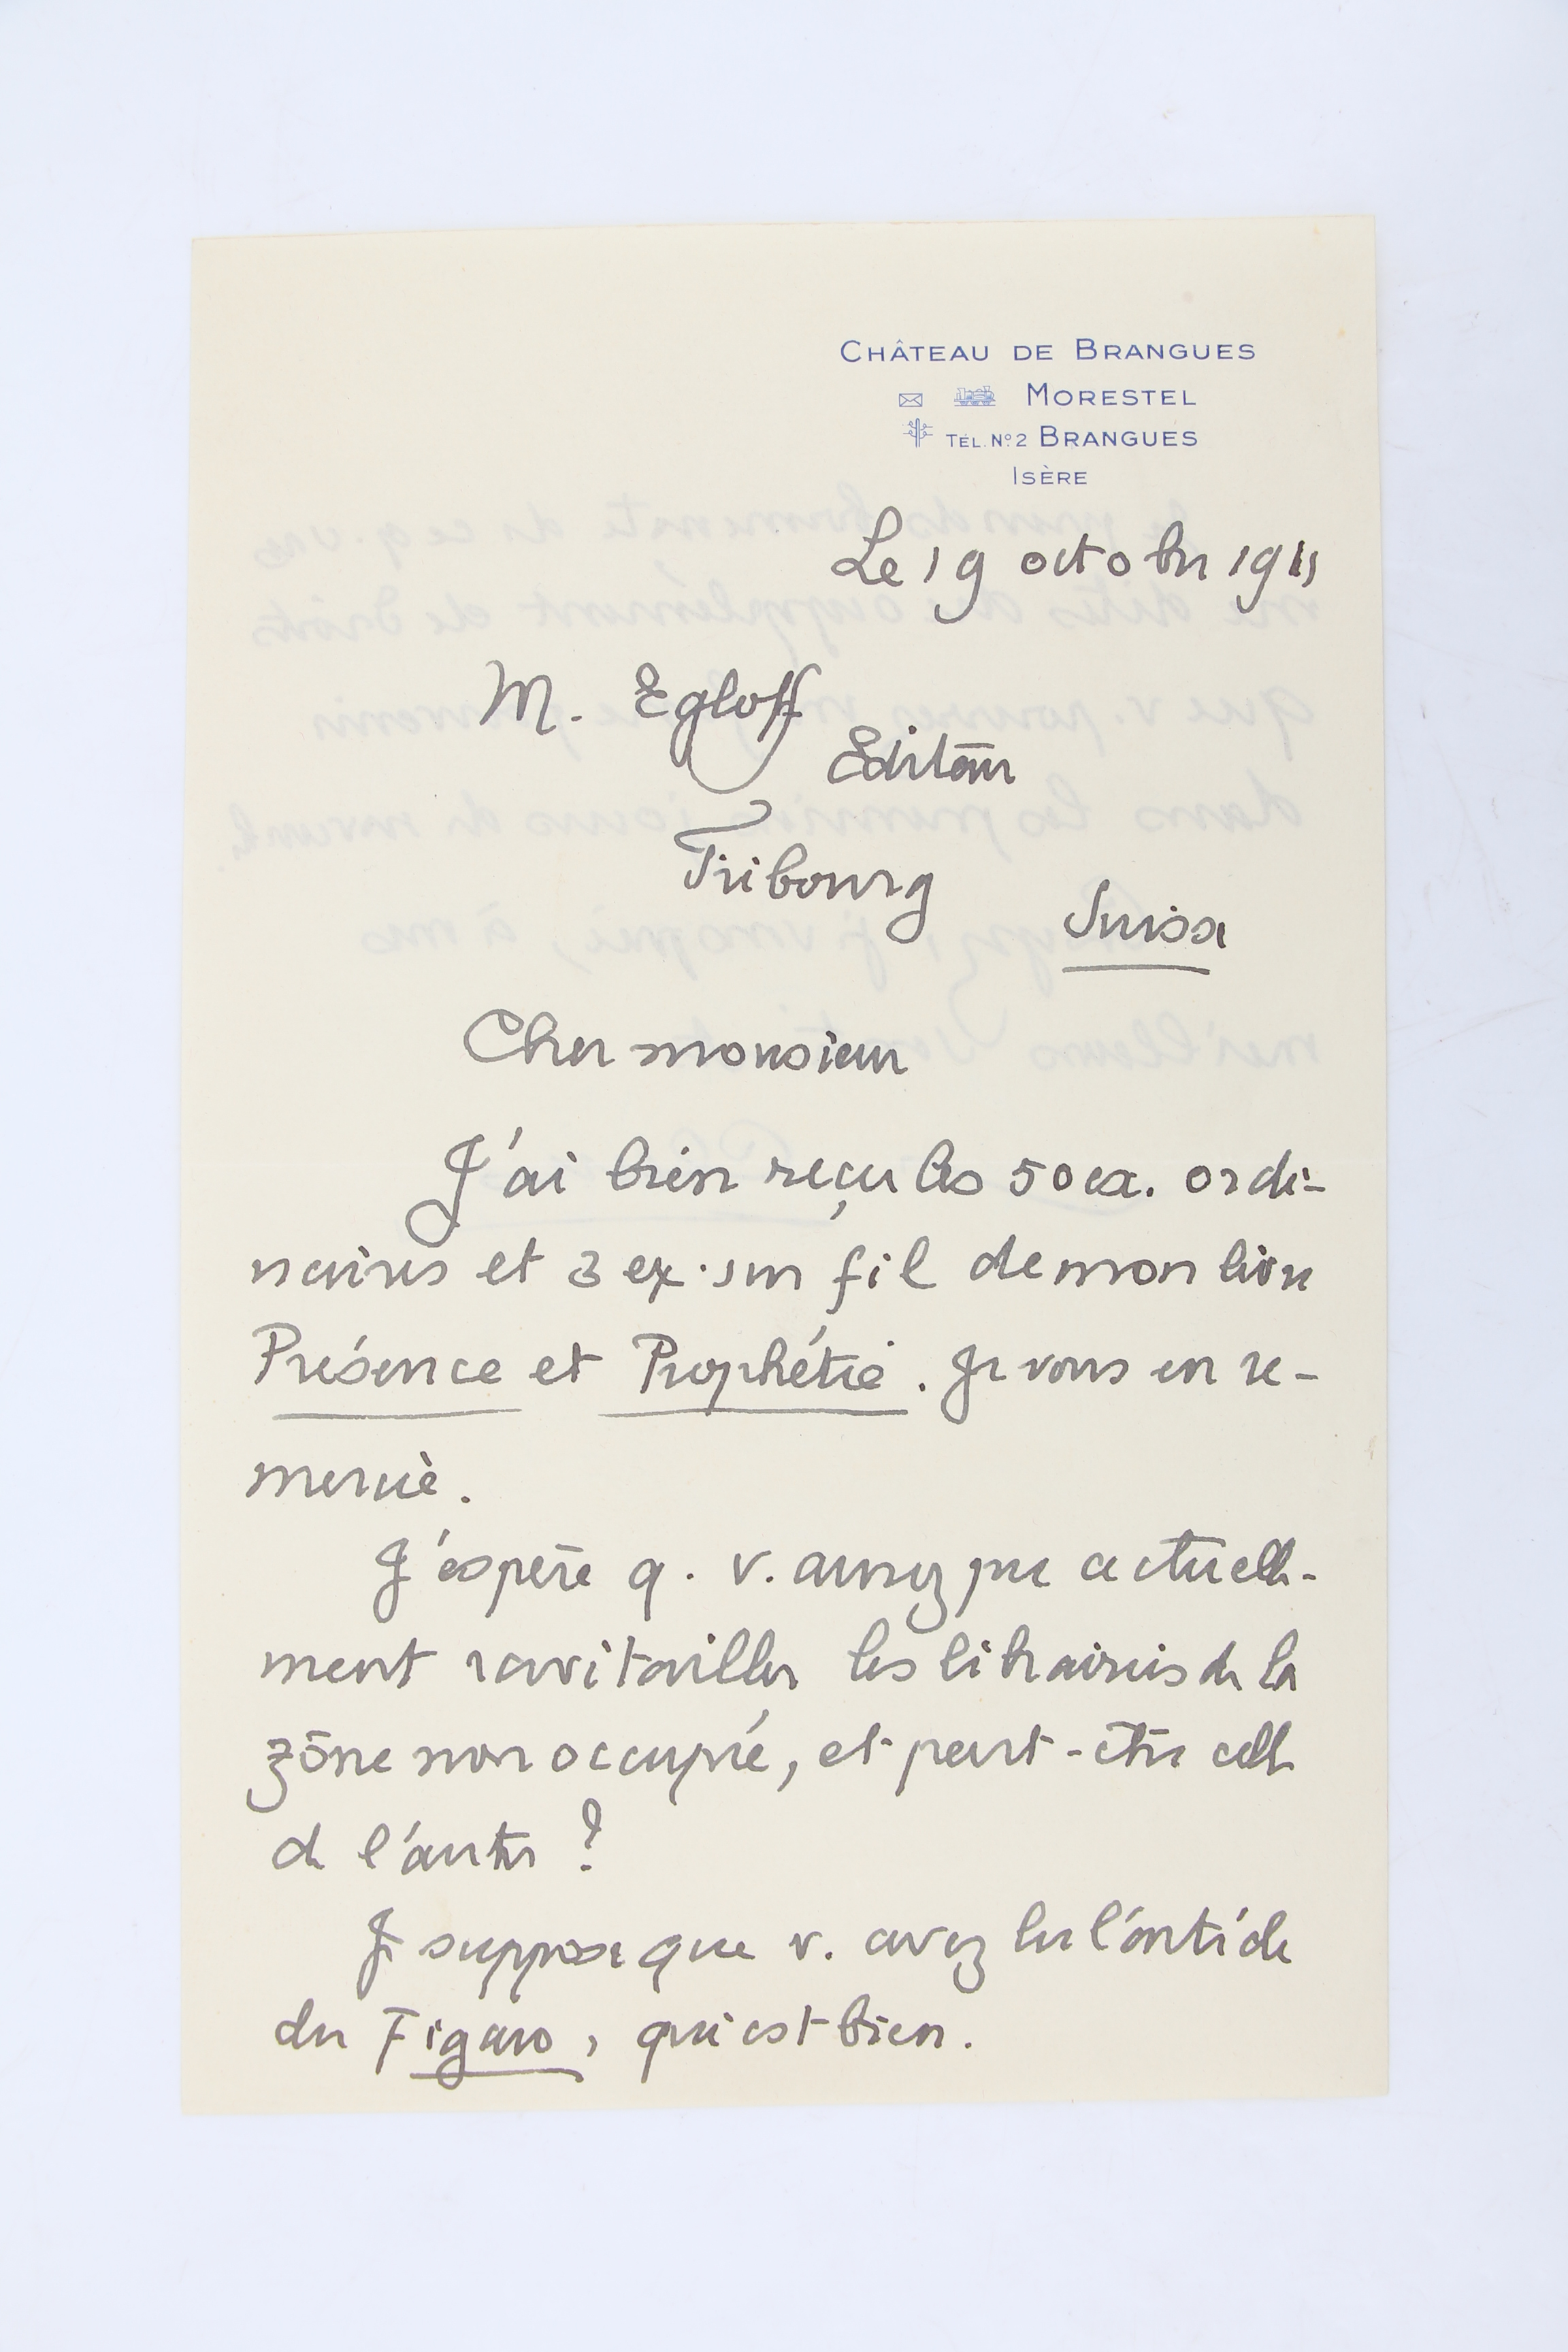 CHÂTEAU DE BRANGUES
MORESTEL
TÉL. Nº 2 BRANGUES
ISÈRE
Le 19 octobre
M. Egloff
Editeur
Fribourg
Suisse
Cher monsieur
J'ai bien reçu les 50 ex. ordi-
naires et 3 ex. sur fil de mon livre
Présence et Prophétie. Je vous en re-
mercie.
J'espère q. v. aurez pu actuelle-
ment ravitailler les librairies de la
zône non occupée, et peut-être celle
de l'autre ?
Je suppose que v. avez lu l'article
du Figaro, qui est bien.